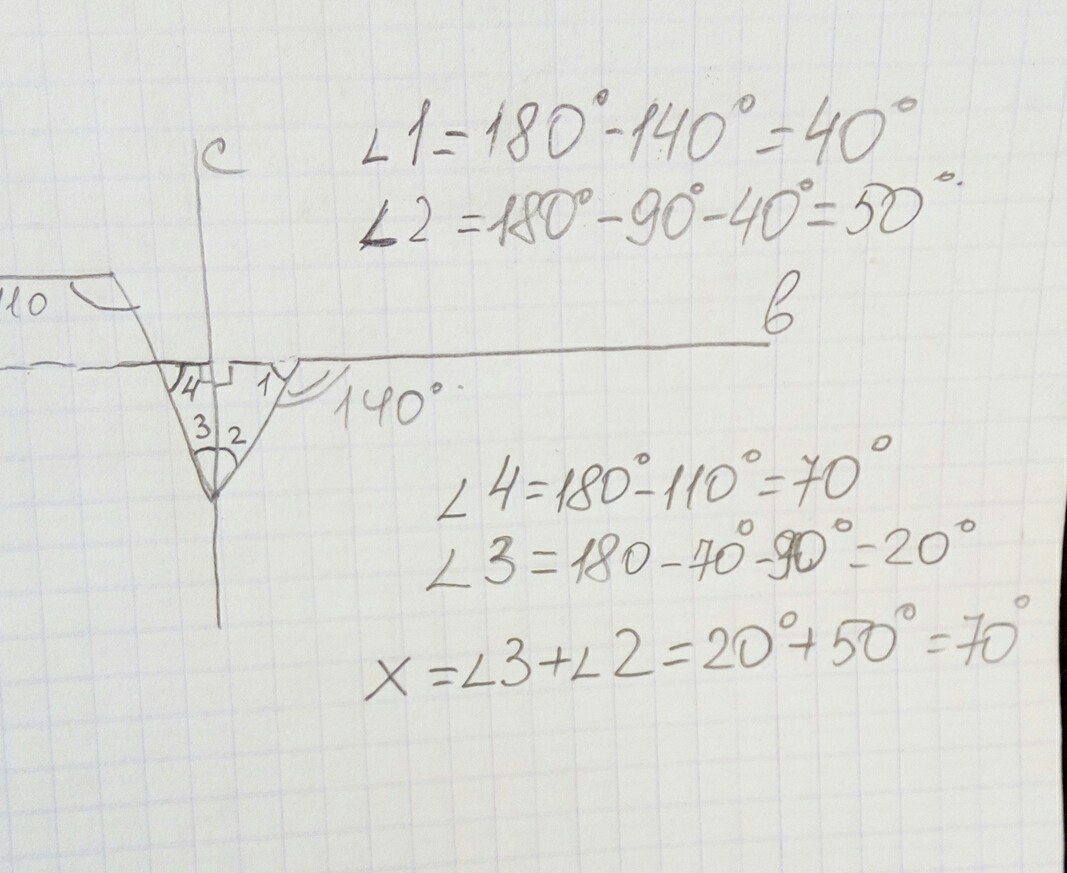 ∠1=180°-140°=40°
c
∠2=180°-90°-40°=50°.
110
в
4
1
140°.
3
2
∠4=180°-110°=70°
∠3=180-70°-90°=20°
x=∠3+∠2=20°+50°=70°